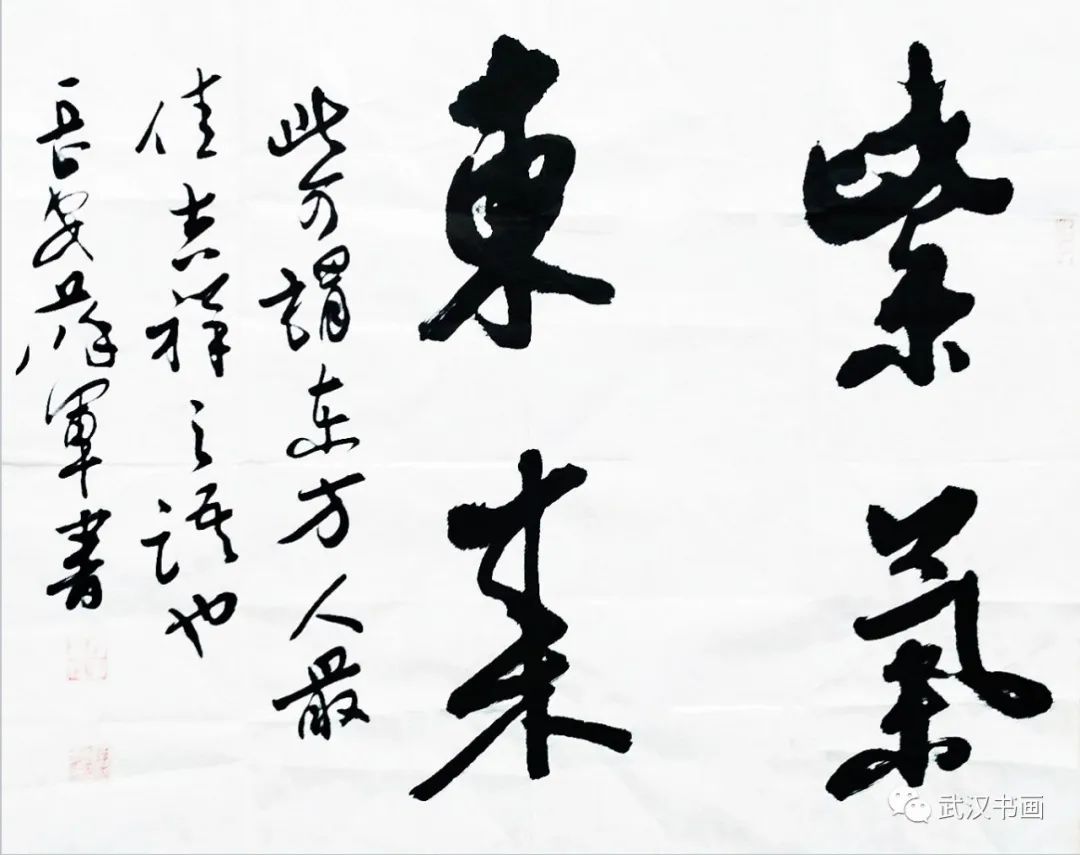 紫氣
東來
此可謂东方人最
佳吉祥之语也
長安薛軍書
武汉书画